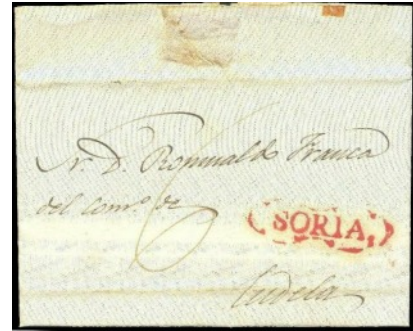 Sr. D. Romualdo Franca
del comº. de
SORIA,
Tudela